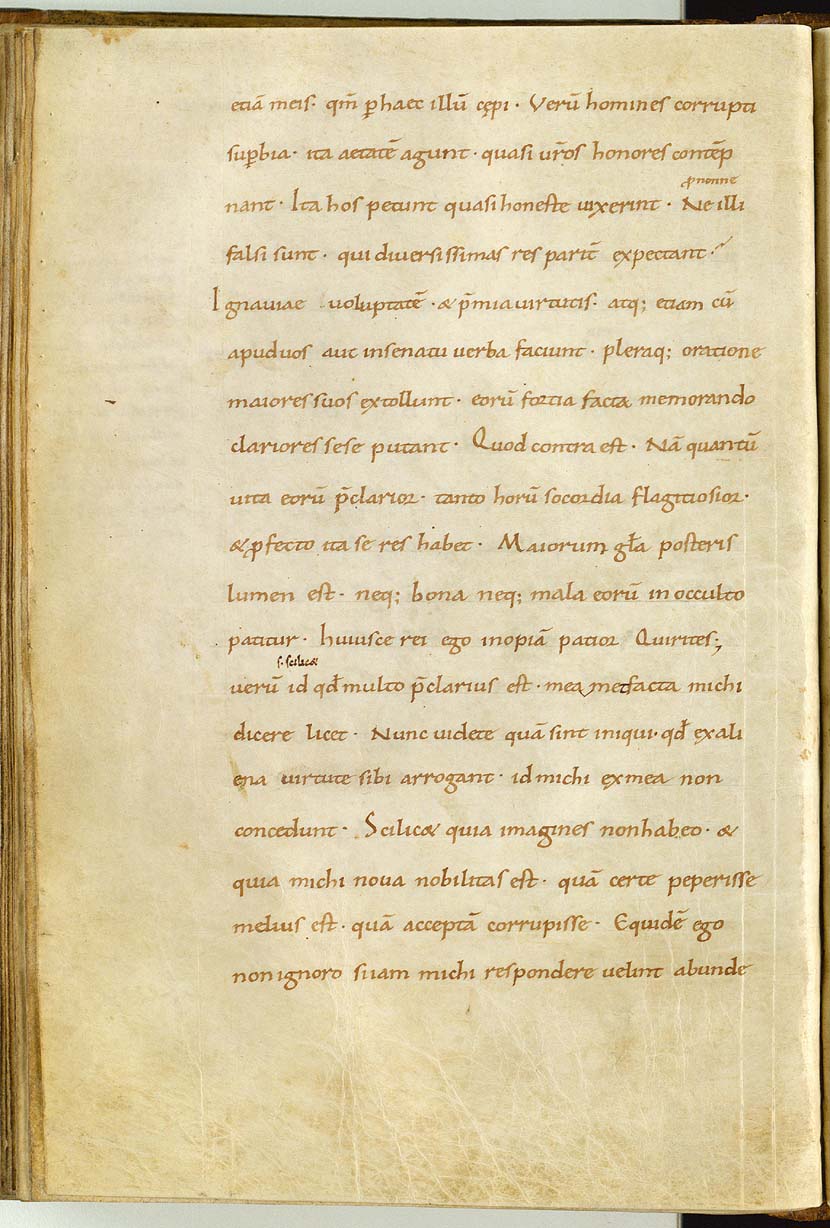 etiā meis· qm̄ ꝑhaec illū cępi · Verū homines corrupti
suꝑbia · ita aetatē agunt · quasi ur̄os honores contēp
ꝓ nonne
nant · Ita hos petunt quasi honeste uixerint · Ne illi
falsi sunt · qui diuersissimas res parit̄ expectant ·
Ignauiae uoluptatē · & p̄mia uirtutis · atq; etiam cū
apud uos aut in senatu uerba faciunt · pleraq; oratione
maiores suos extollunt · eorū fortia facta memorando
clariores sese putant · Quod contra est · Nā quantū
uita eorū p̄clarior · tanto horū socordia flagitiosior ·
& ꝓfecto ita se res habet · Maiorum gła posteris
lumen est · neq; bona neq; mala eorū in occulto
patitur · huiusce rei ego inopiā patior Quirites;
s· scilic&
uerū id qđ multo p̄clarius est · mea met facta michi
dicere licet · Nunc uidete quā sint iniqui · qđ ex ali
ena uirtute sibi arrogant · id michi ex mea non
concedunt · Scilic& quia imagines non habeo · &
quia michi noua nobilitas est · quā certe peperisse
melius est · quā acceptā corrupisse · Equidē ego
non ignoro si iam michi respondere uelint abunde